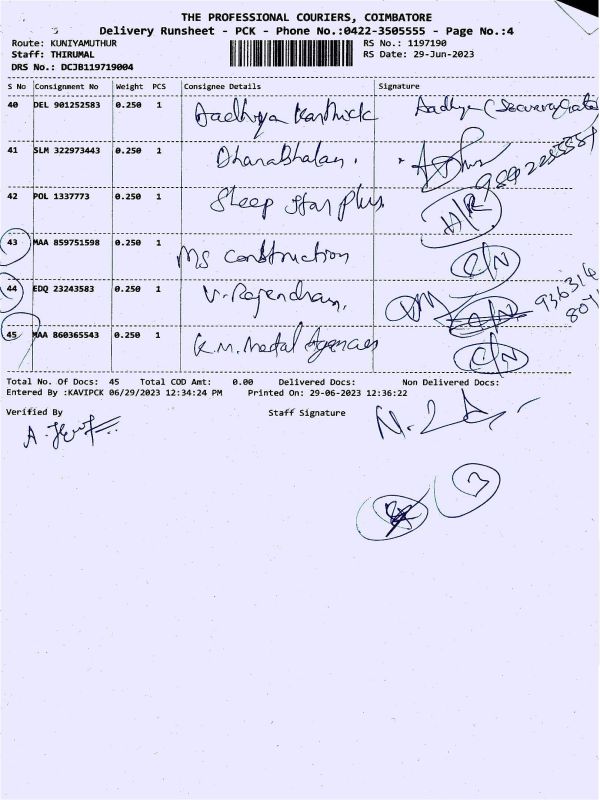 THE PROFESSIONAL COURIERS, COIMBATORE
Delivery Runsheet - PCK - Phone No.:0422-3505555 - Page No.:4
Route: KUNIYAMUTHUR RS No.: 1197190
Staff: THIRUMAL RS Date: 29-Jun-2023
DRS No.: DCJB119719004
S No Consignment No Weight PCS Consignee Details Signature
40 DEL 901252583 0.250 1 Aadhya Karthick Aadhya
41 SLM 322973443 0.250 1 Dhanabhalan.
42 POL 1337773 0.250 1 Sleep Star Plus H/R
43 MAA 859751598 0.250 1 MS Construction C/N
44 EDQ 23243583 0.250 1 V. Rajendran,
45 MAA 860365543 0.250 1 K.M. Metal Agencies C/N
Total No. Of Docs: 45 Total COD Amt: 0.00 Delivered Docs: Non Delivered Docs:
Entered By :KAVIPCK 06/29/2023 12:34:24 PM Printed On: 29-06-2023 12:36:22
Verified By Staff Signature
3